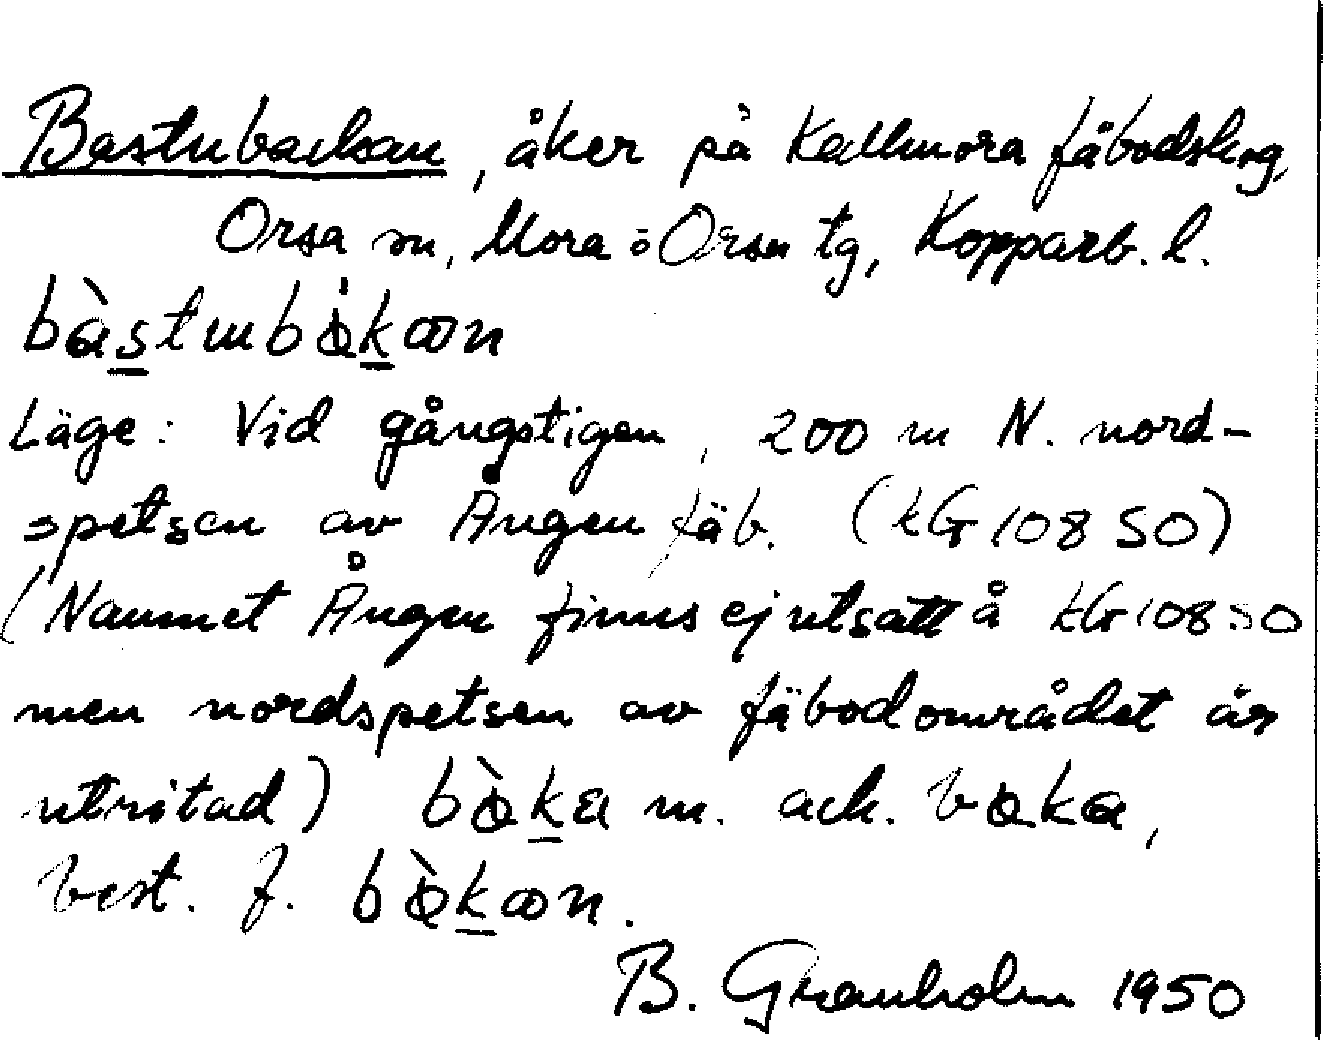 Bastubackan, åker på Kallmora fäbodskog,
Orsa sn, Mora o Orsa tg, Kopparb. l.
Läge: Vid gångstigen, 200 m N. nord-
spetsen av Ången fäb. (kG 108 SO)
(Namnet Ången finns ej utsatt å kG 108 SO
men nordspetsen av fäbodområdet är
utritad) m. ack.
best. f.
B. Granholm 1950